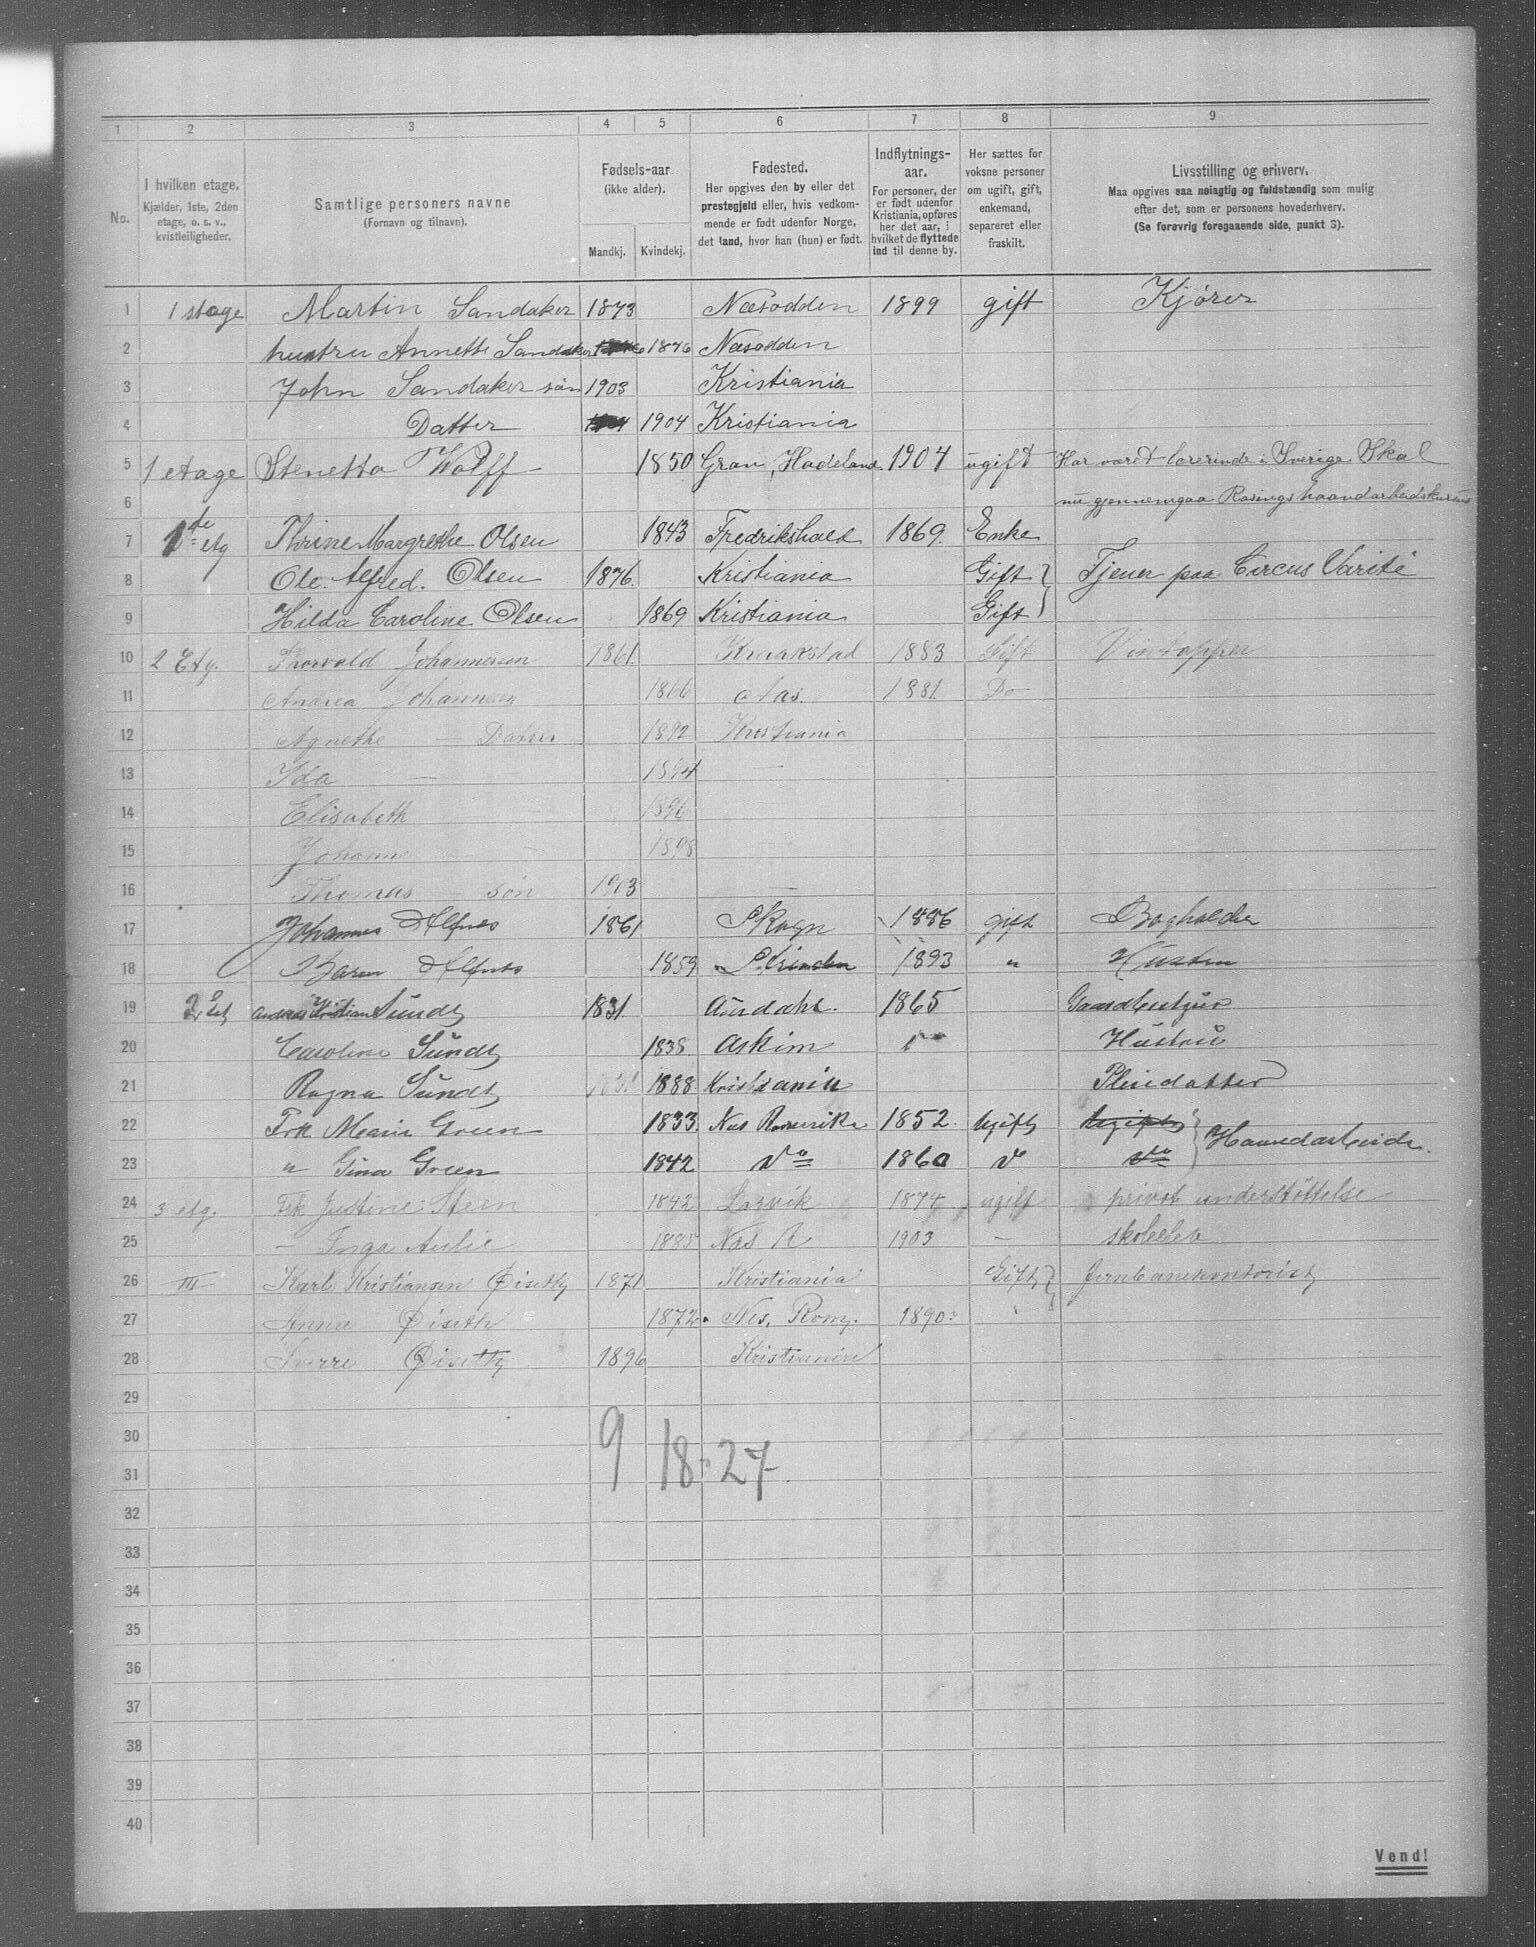 1 2 3 4 5 6 7 8 9
No.
I hvilken etage.
Kjælder, 1ste, 2den
etage, o. s. v.,
kvistleiligheder.
Samtlige personers navne
(Fornavn og tilnavn).
Fødsels-aar
(ikke alder).
Mandkj. Kvindekj.
Fødested.
Her opgives den by eller det
prestegjeld eller, hvis vedkom-
mende er født udenfor Norge,
det land, hvor han (hun) er født.
Indflytnings-
aar.
For personer, der
er født udenfor
Kristiania, opføres
her det aar, i
hvilket de flyttede
ind til denne by.
Her sættes for
voksne personer
om ugift, gift,
enkemand,
separeret eller
fraskilt.
Livsstilling og erhverv.
Maa opgives saa nøiagtig og fuldstændig som mulig
efter det, som er personens hovederhverv.
(Se forøvrig foregaaende side, punkt S).
1 1 etage Martin Sandaker 1873 Næsodden 1899 gift Kjører
2 hustru Annette Sandaker 1876 Næsodden
3 John Sandaker søn 1903 Kristiania
4 Datter 1904 Kristiania
5 1 etage Stenetta Wolff 1850 Gran, Hadeland 1904 ugift Har været lærerinde i Sverige. Skal
6 nu gjennemgaa Rosings haandarbeidskursus
7 1te etg Thrine Margrethe Olsen 1843 Fredrikshald 1869. Enke
8 Ole Alfred. Olsen 1876. Kristiania Gift } Tjener paa Circus Varité
9 Hilda Caroline Olsen 1869 Kristiania Gift
10 2 Etg. Thorvald Johannessen 1861. Kraakstad 1883 Gift Vintapper
11 Andrea Johannesen 1866 Aas. 1881. Do
12 Agnethe — Datter 1892 Kristiania
13 Ida — 1894 —
14 Elisabeth 1896
15 Johanne — 1898
16 Thomas — søn 1903 —
17 Johannes Alfnes 1861 Skogn 1886 gift Bogholder
18 Alfnes 1859 Strinden 1893 " Hustru
19 2 Etg Andreas Kristian Sundt 1831. 1865
20 Caroline Sundt 1838. Askim Hustru
21 Ragna Sundt 1888 Kristiania Pleiedatter
22 Frk Marie Green 1833. Næs Romerike 1852. Ugift } Haandarbeide
23 " Gina Green 1842 do 1860 do do
24 3 etg. Frk Justine Steen 1842 Larvik 1874 ugift privat understøttelse
25 — Inga Aulie 1885 Næs R 1903 — skoleelev
26 III Karl Kristiansen Øiseth 1871 Kristiania Gift } Jernbanekontorist
27 Anna Øiseth 1872. Nes, Rom. 1890 "
28 Sverre Øiseth 1896 Kristiania
29
30
9 18 - 27
31
32
33
34
35
36
37
38
39
40
Vend!